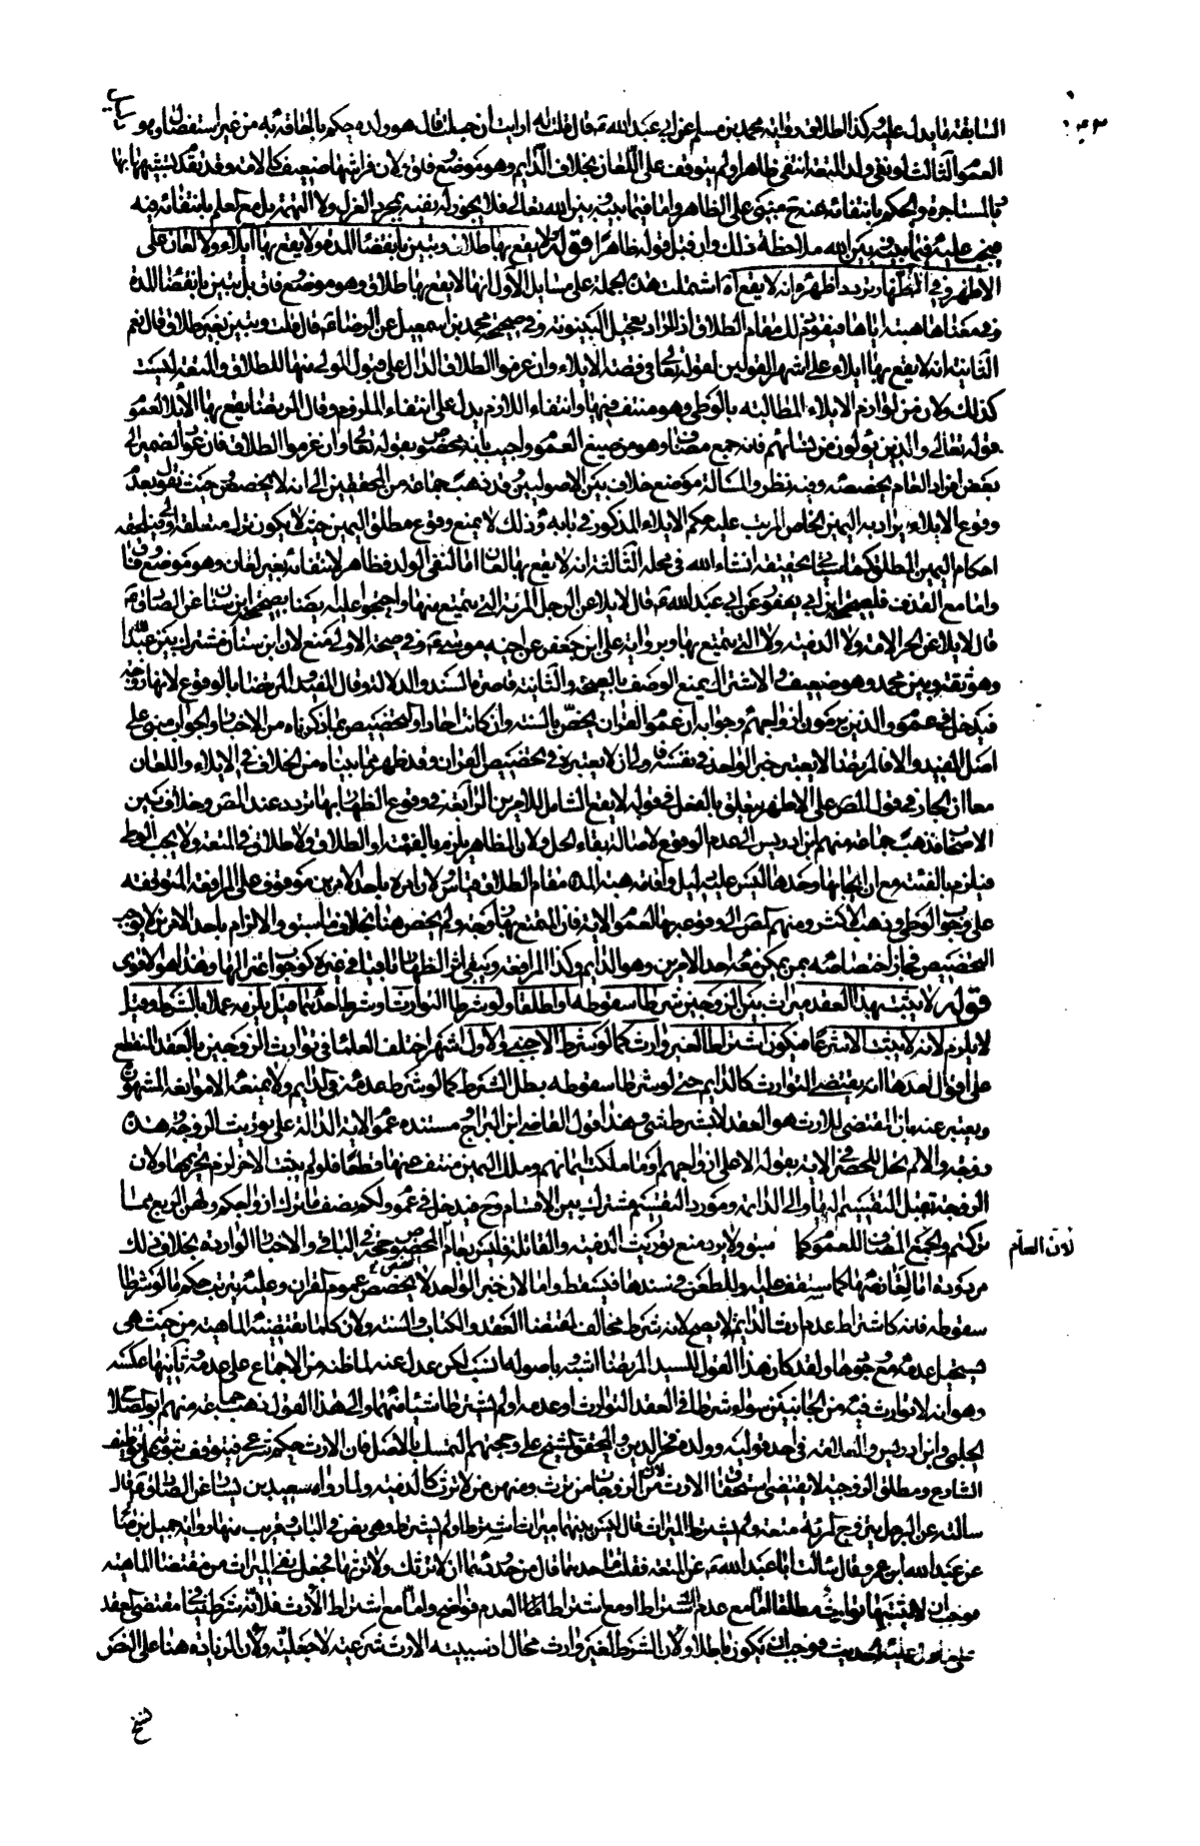 السابقة فما يدل عليه كذا الطلاق رواية محمد بن مسلم عن ابي عبد الله ع قال قلت له ارايت ان حبلت قال هو ولده حكم بالحاقه به من غير استفصال وهو
العموم الثالث لو نفى ولد المتعة انتفى ظاهرا ولم يتوقف على اللعان بخلاف الدايم وهو موضع وفاق لان فراشها ضعيف كالامة وقد تقدم تشبيهها
بالمستاجرة والحكم بانتفائه عنه مبنى على الظاهر واما فيما بينه وبين الله تعالى فلا يجوز له نفيه بمجرد العزل ولا التهمة بل مع العلم بانتفائه فيه
فيجب عليه فيما بينه وبين الله ملاحظة ذلك وان قبل قوله ظاهرا قوله لا يقع بها طلاق وتبين بانقضاء المدة ولا يقع بها ايلاء ولا لعان على
الاظهر وفي الظهار تردد اظهره انه لا يقع اه اشتملت هذه الجملة على مسايل الاول انها لا يقع بها طلاق وهو موضع وفاق بل تبين بانقضاء المدة
وفي معناها هبته اياها فيقوم ذلك مقام الطلاق اذ المراد تعجيل البينونة وفي صحيحة محمد بن اسمعيل عن الرضا ع قال قلت وتبين بغير طلاق قال نعم
الثانية انه لا يقع بها ايلاء على اشهر القولين لقوله تعالى في قصة الايلاء وان عزموا الطلاق الدال على قبول المولى منها للطلاق والمتعة ليست
كذلك ولان من لوازم الايلاء المطالبة بالوطي وهو منتف فيها وانتفاء اللازم يدل على انتفاء الملزوم وقال المرتضى يقع بها الايلاء لعموم
قوله تعالى والذين يؤلون من نسائهم فانه جمع مضاف وهو من صيغ العموم واجيب بانه مخصوص بقوله تعالى وان عزموا الطلاق فان عود الضمير الى
بعض افراد العام يخصصه وفيه نظر والمسالة موضع خلاف بين الاصوليين وقد ذهب جماعة من المحققين الى انه لا يخصص فمن حيث نقول بعدم
وقوع الايلاء يراد به اليمين الخاص المرتب عليه حكم الايلاء المذكور في بابه وذلك لا يمنع وقوع مطلق اليمين حيث لا يكون ترك متعلقه اولى فيلحقه
احكام اليمين المطلق كما سياتي تحقيقه انشاء الله في محله الثالثة انه لا يقع بها لعان اما لنفى الولد فظاهر لانتفائه بغير لعان وهو موضع وفاق
واما مع القذف فلصحيحة ابن ابي يعفور عن ابي عبد الله ع قال لا يلاعن الرجل المراة التي يتمتع منها واحتجوا عليه ايضا بصحيحة ابن سنان عن الصادق ع
قال لا يلاعن الحر الامة ولا الذمية ولا التي يتمتع بها وبرواية علي بن جعفر عن اخيه موسى ع وفي صحة الاولى منع لان ابن سنان مشترك بين عبد الله
وهو ثقة وبين محمد وهو ضعيف والاشتراك يمنع الوصف بالصحة والثانية قاصرة السند والدلالة وقال المفيد والمرتضى بالوقوع لانها زوجة
فيدخل في عموم والذين يرمون ازواجهم وجوابه ان عموم القران يخص بالسنة وان كانت احادا والتخصيص بما ذكرناه من الاخبار والجواب مبنى على
اصل المفيد والا فالمرتضى لا يعتبر خبر الواحد في نفسه فاولى ان لا يعتبره في تخصيص القران وقد ظهر مما بيناه من الخلاف في الايلاء واللعان
معا ان الجار في قول المصـ على الاظهر يتعلق بالفعل في قوله لا يقع الشامل للامرين الرابعة في وقوع الظهار بها تردد عند المصـ وخلاف بين
الاصحاب فذهب جماعة منهم ابن ادريس الى عدم الوقوع لاصالة بقاء الحل ولان المظاهر يلزم بالفئة او الطلاق ولا طلاق في المتعة ولا يجب الوطي
فيلزم بالفئة مع ان ايجابها وحدها ليس عليه دليل واقامة هبة المدة مقام الطلاق قياس لان امره باحد الامرين موقوف على المرافعة المتوقفة
على وجوب الوطي وذهب الاكثر ومنهم المصـ الى وقوعه بها لعموم الاية فان المتمتع بها زوجة ولم يخص هنا بخلاف ما سبق والالزام باحد الامرين لا يوجب
التخصيص فجاز اختصاصه بمن يمكن معه احد الامرين وهو الدايم وكذا المرافعة ويبقى اثر الظهار ثابتا في غيره كوجوب اعتزالها وهذا هو الاقوى
قوله لا يثبت بهذا العقد ميراث بين الزوجين شرطا سقوطه او اطلقا ولو شرطا التوارث او شرط احدهما قيل يلزمه عملا بالشرط وقيل
لا يلزم لانه لا يثبت الا شرعا فيكون اشتراطا لغير وارث كما لو شرط لاجنبي والاول اشهر اختلف العلماء في توارث الزوجين بالعقد المنقطع
على اقوال احدها انه يقتضي التوارث كالدايم حتى لو شرطا سقوطه بطل الشرط كما لو شرط عدمه في الدايم ولا يمنعه الا موانعه المشهورة
ويعتبر عنه بان المقتضى للارث هو العقد لا بشرط شئ وهذا قول القاضي ابن البراج ومستنده عموم الاية الدالة على توريث الزوجة وهذه
زوجة والا لم تحل للحصر في الاية بقوله الا على ازواجهم او ما ملكت ايمانهم وملك اليمين منتف عنها قطعا فلو لم يثبت الاخر لزم تحريمها ولان
الزوجة تقبل التقسيم اليها والى الدائمة ومورد التقسيم مشترك بين الاقسام وح فيدخل في عموم ولكم نصف ما ترك ازواجكم ولهن الربع مما
تركتم والجمع المضاف للعموم كما سبق ولا يرد منع توريث الذمية والقاتلة وليس بعام لان العام المخصوص حجة في الباقي والاخبار الواردة بخلاف ذلك
مردودة اما لتعارضها كما ستقف عليه وللطعن في سندها فيسقط واما لان خبر الواحد لا يخصص عموم القران وعليه يترتب حكم ما لو شرطا
سقوطه فانه كاشتراط عدم ارث الدايم لا يصح لانه شرط مخالف لمقتضى العقد والكتاب والسنة ولان كلما تقتضيه الماهية من حيث هي
يستحيل عدمه مع وجودها ولقد كان هذا القول للسيد المرتضى اشبه باصوله انسب لكن عدل عنه لما ظنه من الاجماع على عدمه وثانيها عكسه
وهو انه لا توارث فيه من الجانبين سواء شرطا في العقد التوارث او عدمه او لم يشترطا شيئا منهما والى هذا القول ذهب جماعة منهم ابو الصلاح
الحلبي وابن ادريس والعلامة في احد قوليه وولده فخر الدين والمحقق الشيخ علي وحجتهم التمسك بالاصل فان الارث حكم شرعي فيتوقف ثبوته على توظيف
الشارع ومطلق الزوجية لا يقتضي استحقاق الارث لان من الزوجات من ترث ومنهن من لا ترث كالذمية ولما رواه سعيد بن يسار عن الصادق ع قال
سالته عن الرجل يتزوج المراة متعة ولم يشترط الميراث قال ليس بينهما ميراث اشترط او لم يشترط وهي نص في الباب وقريب منها رواية جميل بن صالح
عن عبد الله بن عمرو قال سالت ابا عبد الله ع عن المتعة فقلت ما حدها قال من حدودها ان لا ترثك ولا ترثها فجعل نفى الميراث من مقتضى الماهية
فوجب ان لا يثبت بها توارث مطلقا اما مع عدم اشتراطه او مع اشتراط العدم فواضح واما مع اشتراط الارث فلانه شرط ينافي مقتضى العقد
على ما دل عليه الحديث فوجب ان يكون باطلا ولان الشرط لغير وارث محال اذ سببية الارث شرعية لا جعلية ولان الزيادة هنا على النص
لان العام
نسخ